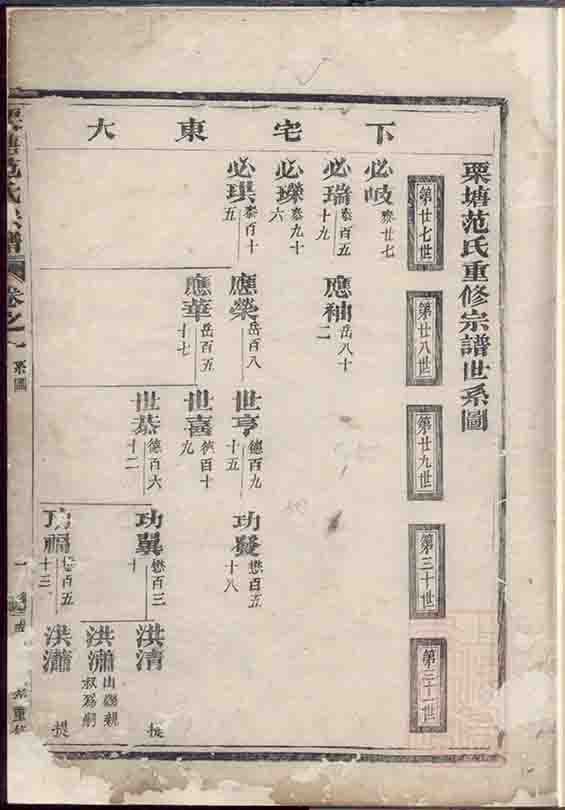 栗塘范氏重修宗譜世系圖
下宅東大
第廿七世
必岐 泰廿七
必瑞 泰百五十九
必瓅 泰九十六
必琪 泰百十五
第廿八世
應袖 岳八十二
應榮 岳百八
應華 岳百五十七
第廿九世
世亨 德百九十五
世喜 德百十九
世恭 德百六十二
第三十世
功疑 懋百五十八
功翼 懋百三十
功福 百五十三
第三十一世
洪清 提
洪瀟 出繼親叔為嗣
洪瀟 提
范氏宗譜 卷之一 系圖
重修